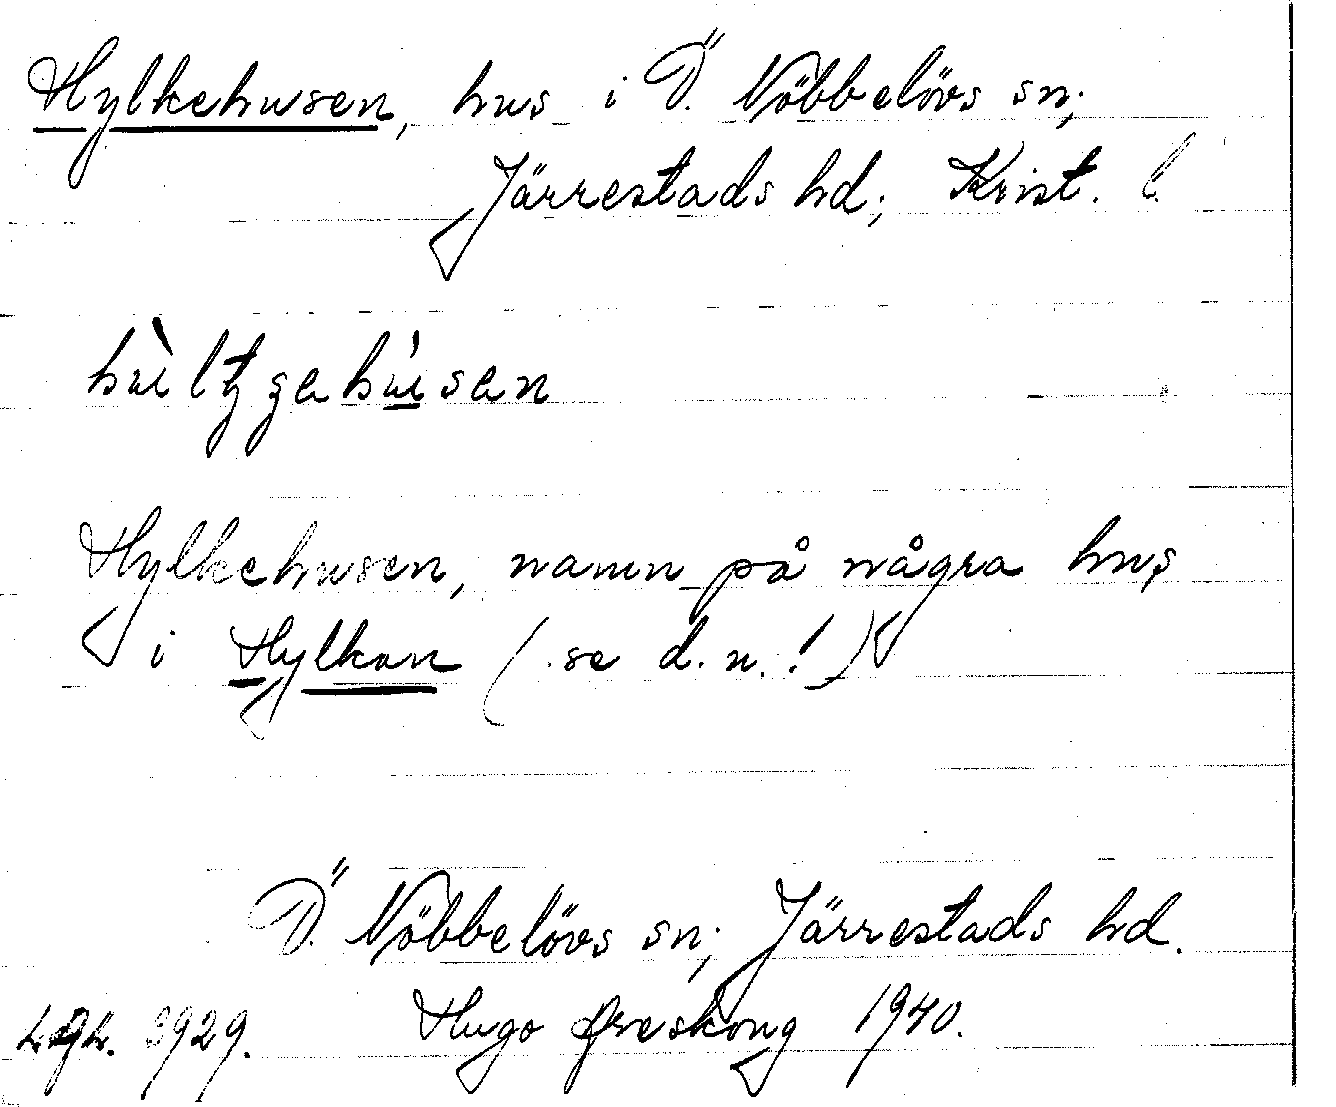 Hylkehusen, hus i Ö. Nöbbelövs sn;
Järrestads hd; Krist. l.
Hylkehusen, namn på några hus
i Hylkan (se d. n.!)
Ö. Nöbbelövs sn; Järrestads hd.
3929. Hugo Areskoug 1940.